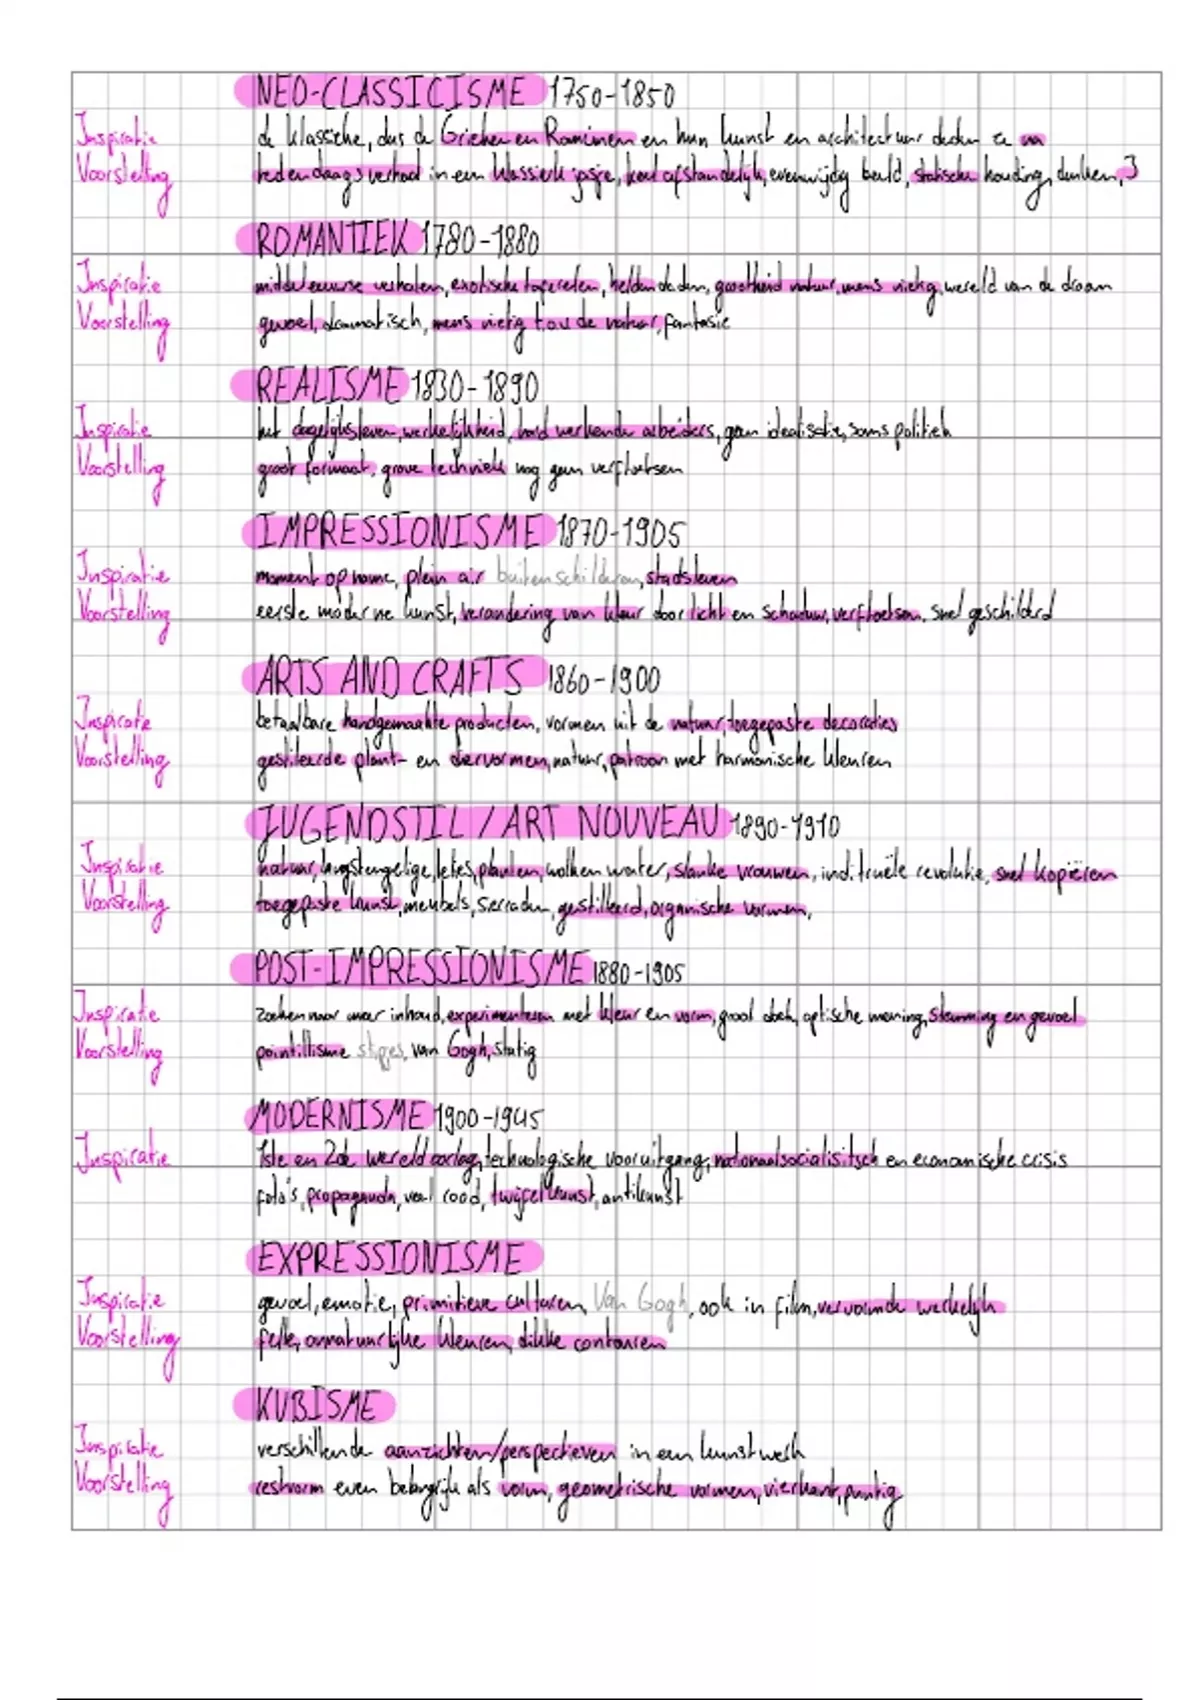 NEO-CLASSICISME 1750-1850
Inspiratie de klassieke, dus de Grieken en Romeinen en hun kunst en architectuur deden ze na
Voorstelling hedendaags verhaal in een klassiek jasje, koel afstandelijk, evenwijdig beeld, statische houding, denken, 3
ROMANTIEK 1780-1880
Inspiratie middeleeuwse verhalen, exotische taferelen, heldendaden, grootheid natuur, mens nietig, wereld van de droom
Voorstelling gevoel, dramatisch, mens nietig t.o.v de natuur, fantasie
REALISME 1830-1890
Inspiratie het dagelijks leven, werkelijkheid, hard werkende arbeiders, geen idealisatie, soms politiek
Voorstelling groot formaat, grove techniek nog geen verftoetsen
IMPRESSIONISME 1870-1905
Inspiratie moment opname, plein air buiten schilderen, stadsleven
Voorstelling eerste moderne kunst, verandering van kleur door licht en schaduw, verftoetsen, snel geschilderd
ARTS AND CRAFTS 1860-1900
Inspiratie betaalbare handgemaakte producten, vormen uit de natuur, toegepaste decoraties
Voorstelling gestileerde plant- en diervormen, natuur, patroon met harmonische kleuren
JUGENDSTIL / ART NOUVEAU 1890-1910
Inspiratie natuur, langstengelige, lelies, planten, wolken water, slanke vrouwen, indistruële revolutie, snel kopiëren
Voorstelling toegepaste kunst, meubels, sierraden, gestileerd, organische vormen,
POST-IMPRESSIONISME 1880-1905
Inspiratie zoeken naar meer inhoud, experimenteren met kleur en vorm, groot doek, optische mening, stemming en gevoel
Voorstelling pointillisme stipjes, van Gogh, statig
MODERNISME 1900-1945
Inspiratie 1ste en 2de wereldoorlog, technologische vooruitgang, nationaalsocialistisch en economische crisis
foto's, propaganda, veel rood, twijfel kunst, antikunst
EXPRESSIONISME
Inspiratie gevoel, emotie, primitieve culturen, Van Gogh, ook in film, vervormde werkelijk
Voorstelling felle, onnatuurlijke kleuren, dikke contouren
KUBISME
Inspiratie verschillende aanzichten/perspectieven in een kunstwerk
Voorstelling restvorm even belangrijk als vorm, geometrische vormen, vierkant, puntig